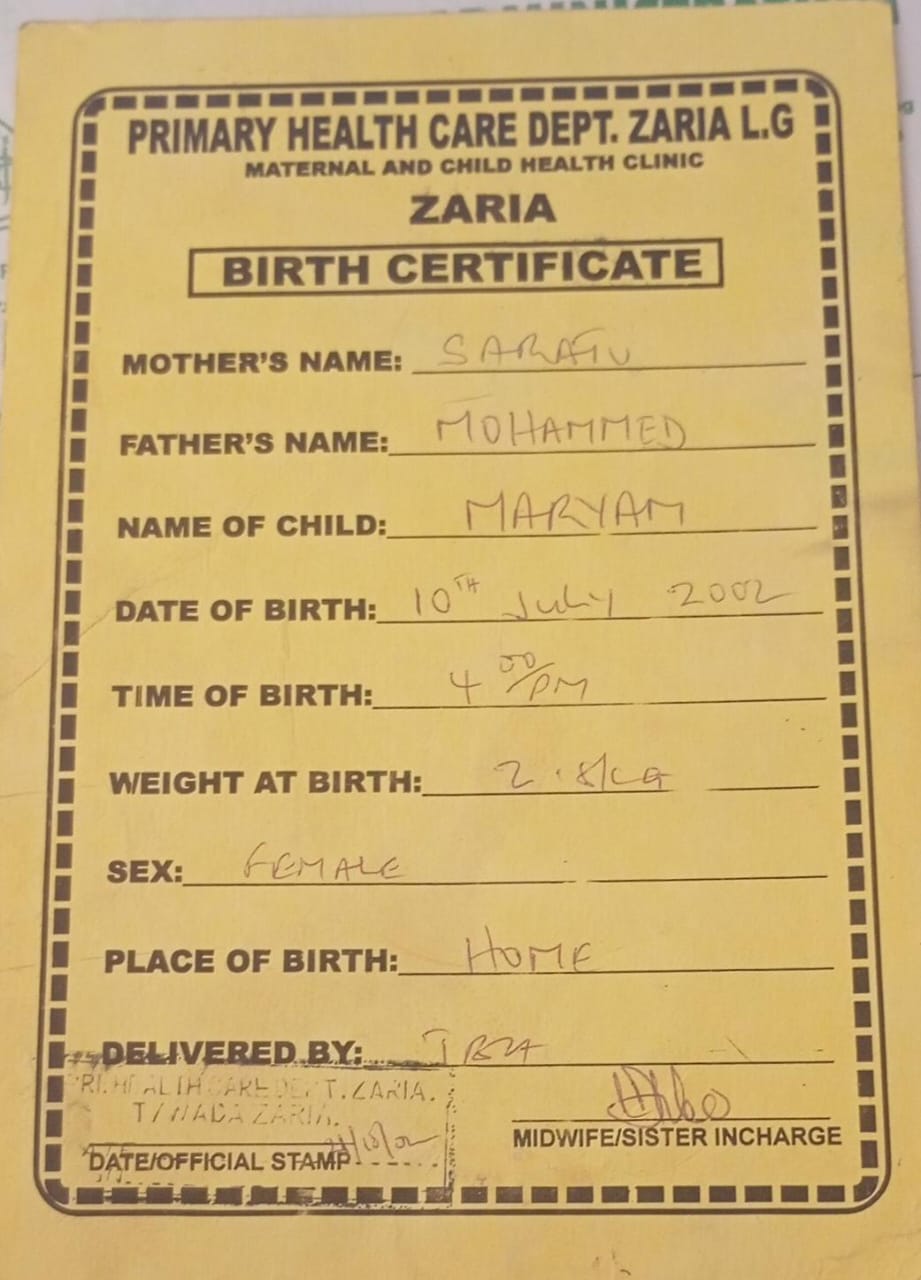 PRIMARY HEALTH CARE DEPT. ZARIA L.G
MATERNAL AND CHILD HEALTH CLINIC
ZARIA
BIRTH CERTIFICATE
MOTHER'S NAME: SARATU
FATHER'S NAME: MOHAMMED
NAME OF CHILD: MARYAM
DATE OF BIRTH: 10TH July 2002
TIME OF BIRTH: 4 00/PM
WEIGHT AT BIRTH: 2.8/KG
SEX: FEMALE
PLACE OF BIRTH: HOME
DELIVERED BY: TBA
PRI. HEALTH CARE DEPT. ZARIA.
T/WADA ZARIA.
DATE/OFFICIAL STAMP
MIDWIFE/SISTER INCHARGE